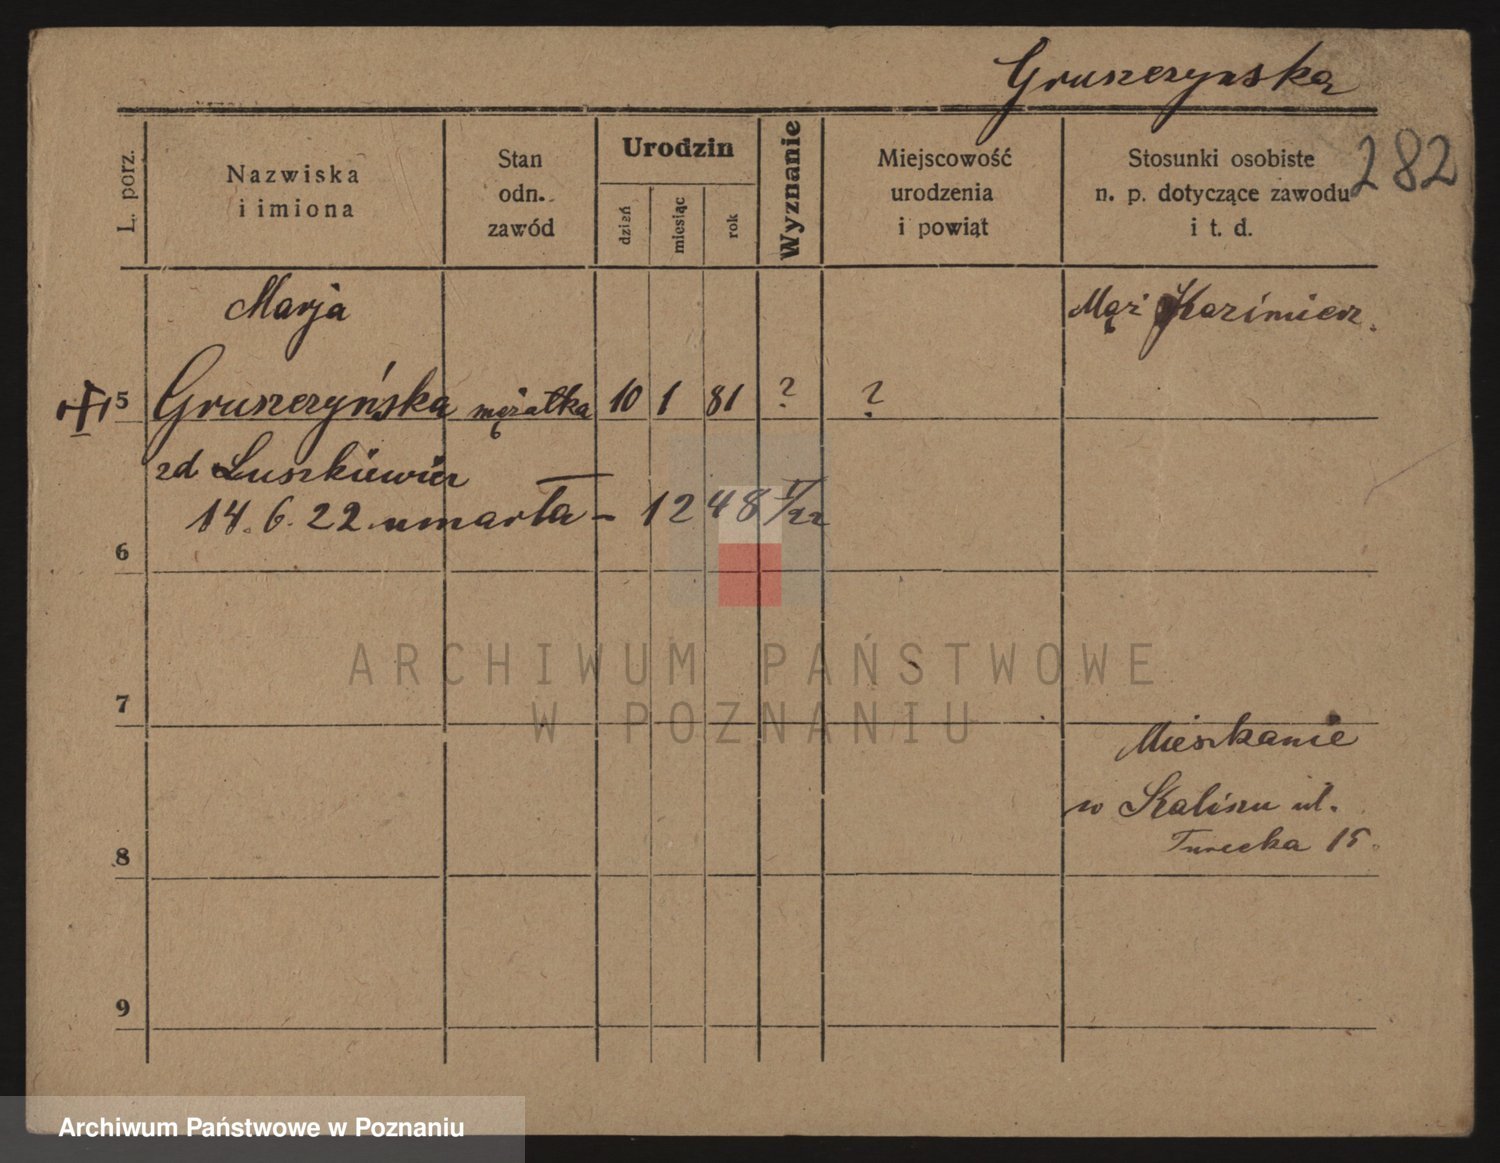 Gruszczynska
282
L. porz.
Nazwiska
i imiona
Stan
odn.
zawód
Urodzin
dzień
miesiąc
rok
Wyznanie
Miejscowość
urodzenia
i powiąt
Stosunki osobiste
n. p. dotyczące zawodu
i t. d.
Marja
Mąż Kazimierz.
5 Gruszczyńska mężatka 10 1 81 ? ?
zd Luszkiewicz
14. 6. 22 umarła – 1248 V/22
6
ARCHIWUM PAŃSTWOWE
7
W POZNANIU
Mieszkanie
w Kaliszu ul.
Turecka 15.
8
9
Archiwum Państwowe w Poznaniu